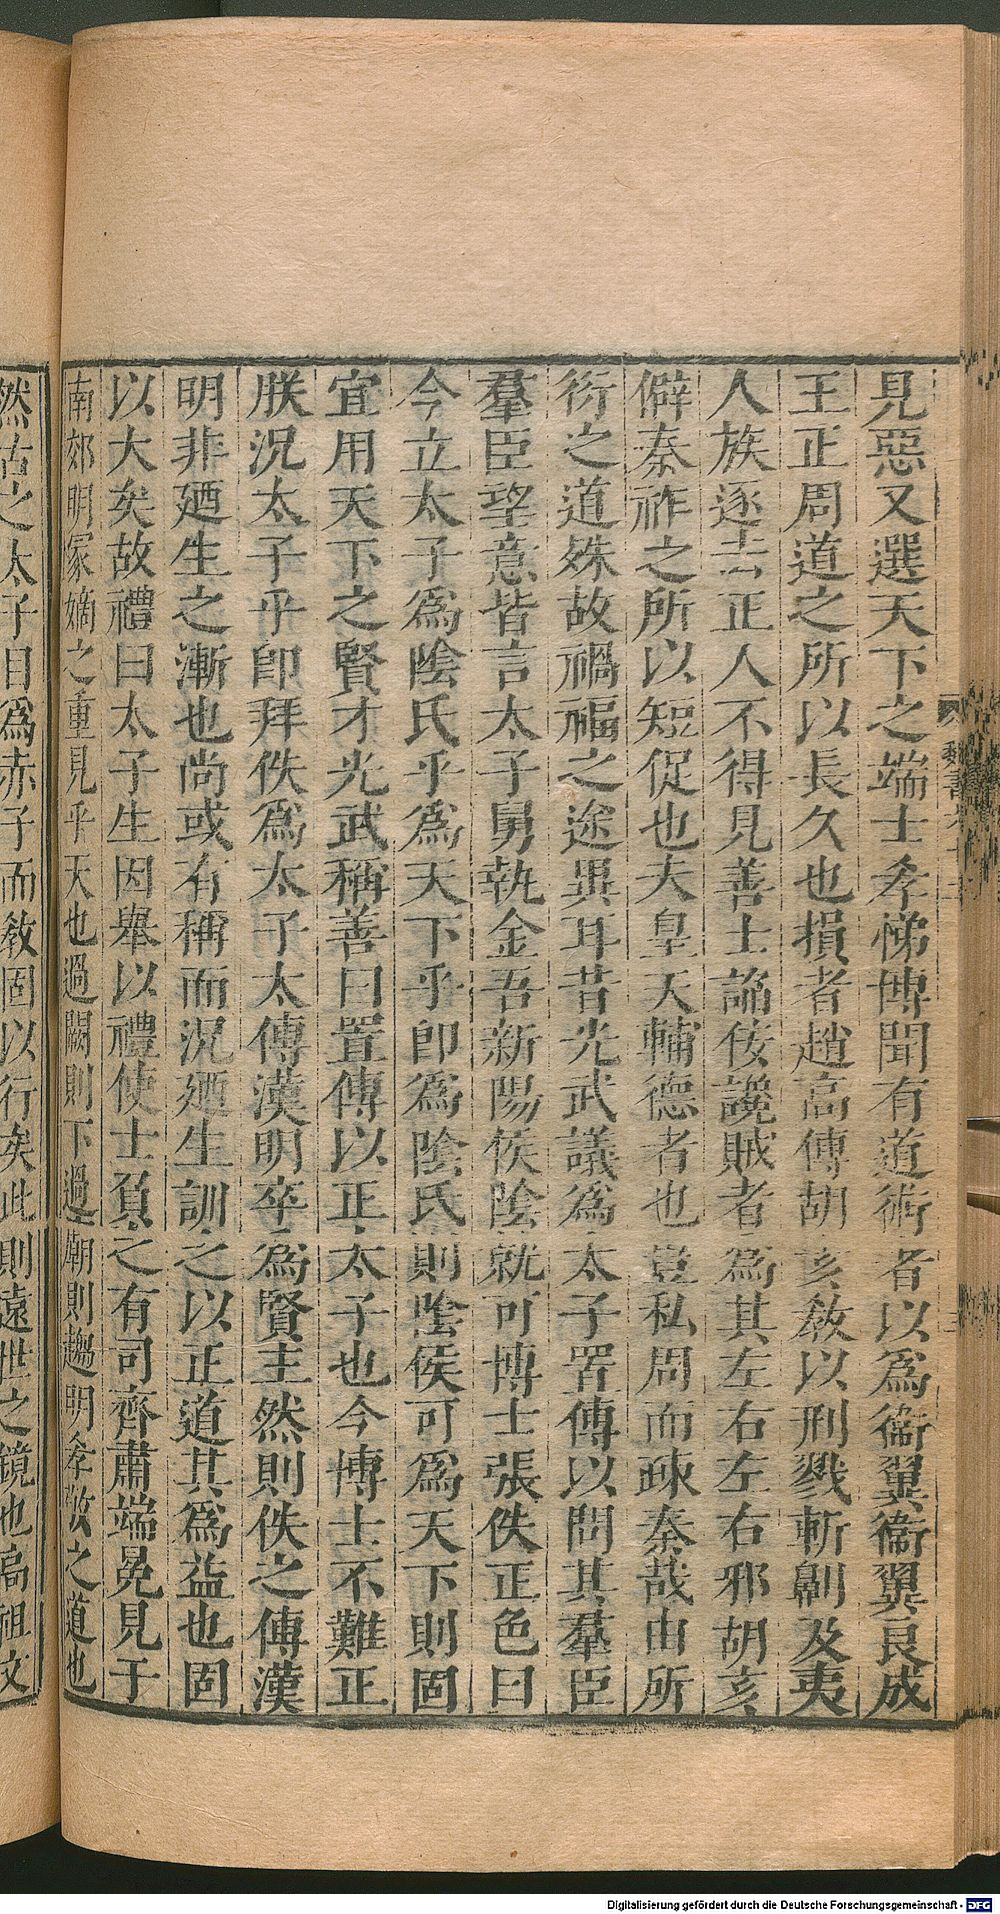 見惡又選天下之端士孝悌博聞有道術者以爲衞翼衞翼良成
王正周道之所以長久也損者趙高傅胡亥敎以刑戮斬劓及夷
人族逐去正人不得見善士諂佞讒賊者爲其左右左右邪胡亥
僻秦祚之所以短促也夫皇天輔德者也豈私周而疎秦哉由所
衍之道殊故禍福之途異耳昔光武議爲太子置傅以問其羣臣
羣臣望意皆言太子舅執金吾新陽侯陰就可博士張佚正色曰
今立太子爲陰氏乎爲天下乎卽爲陰氏則陰侯可爲天下則固
宜用天下之賢才光武稱善曰置傅以正太子也今博士不難正
朕況太子乎卽拜佚爲太子太傅漢明卒爲賢主然則佚之傅漢
明非廼生之漸也尚或有稱而況廼生訓之以正道其爲益也固
以大矣故禮曰太子生因舉以禮使士負之有司齊肅端冕見于
南郊明冢嫡之重見乎天也過闕則下過廟則趨明孝敬之道也
然古之太子目爲赤子而敎固以行矣此則遠世之鏡也高祖文
魏書
Digitalisierung gefördert durch die Deutsche Forschungsgemeinschaft - DFG